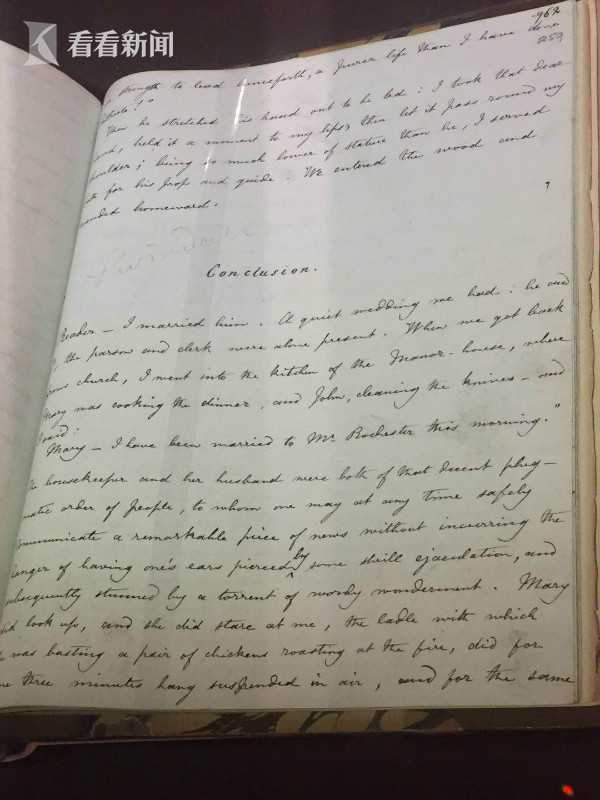 看看新闻
962
259
strength to lead henceforth, a purer life than I have done
Then he stretched his hand out to be led : I took that dear
hand, held it a moment to my lips, then let it pass round my
shoulder; being so much lower of stature than he, I served
for his prop and guide. We entered the wood and
wended homeward.
Conclusion.
Reader - I married him. A quiet wedding we had : he and
I, the parson and clerk were alone present. When we got back
from church, I went into the kitchen of the Manor-house, where
Mary was cooking the dinner, and John, cleaning the knives - and
I said:
Mary - I have been married to Mr Rochester this morning."
The housekeeper and her husband were both of that decent phleg-
matic order of people, to whom one may at any time safely
communicate a remarkable piece of news without incurring the
danger of having one's ears pierced by some shrill ejaculation, and
subsequently stunned by a torrent of wordy wonderment. Mary
did look up, and she did stare at me, the ladle with which
she was basting a pair of chickens roasting at the fire, did for
some three minutes hang suspended in air, and for the same